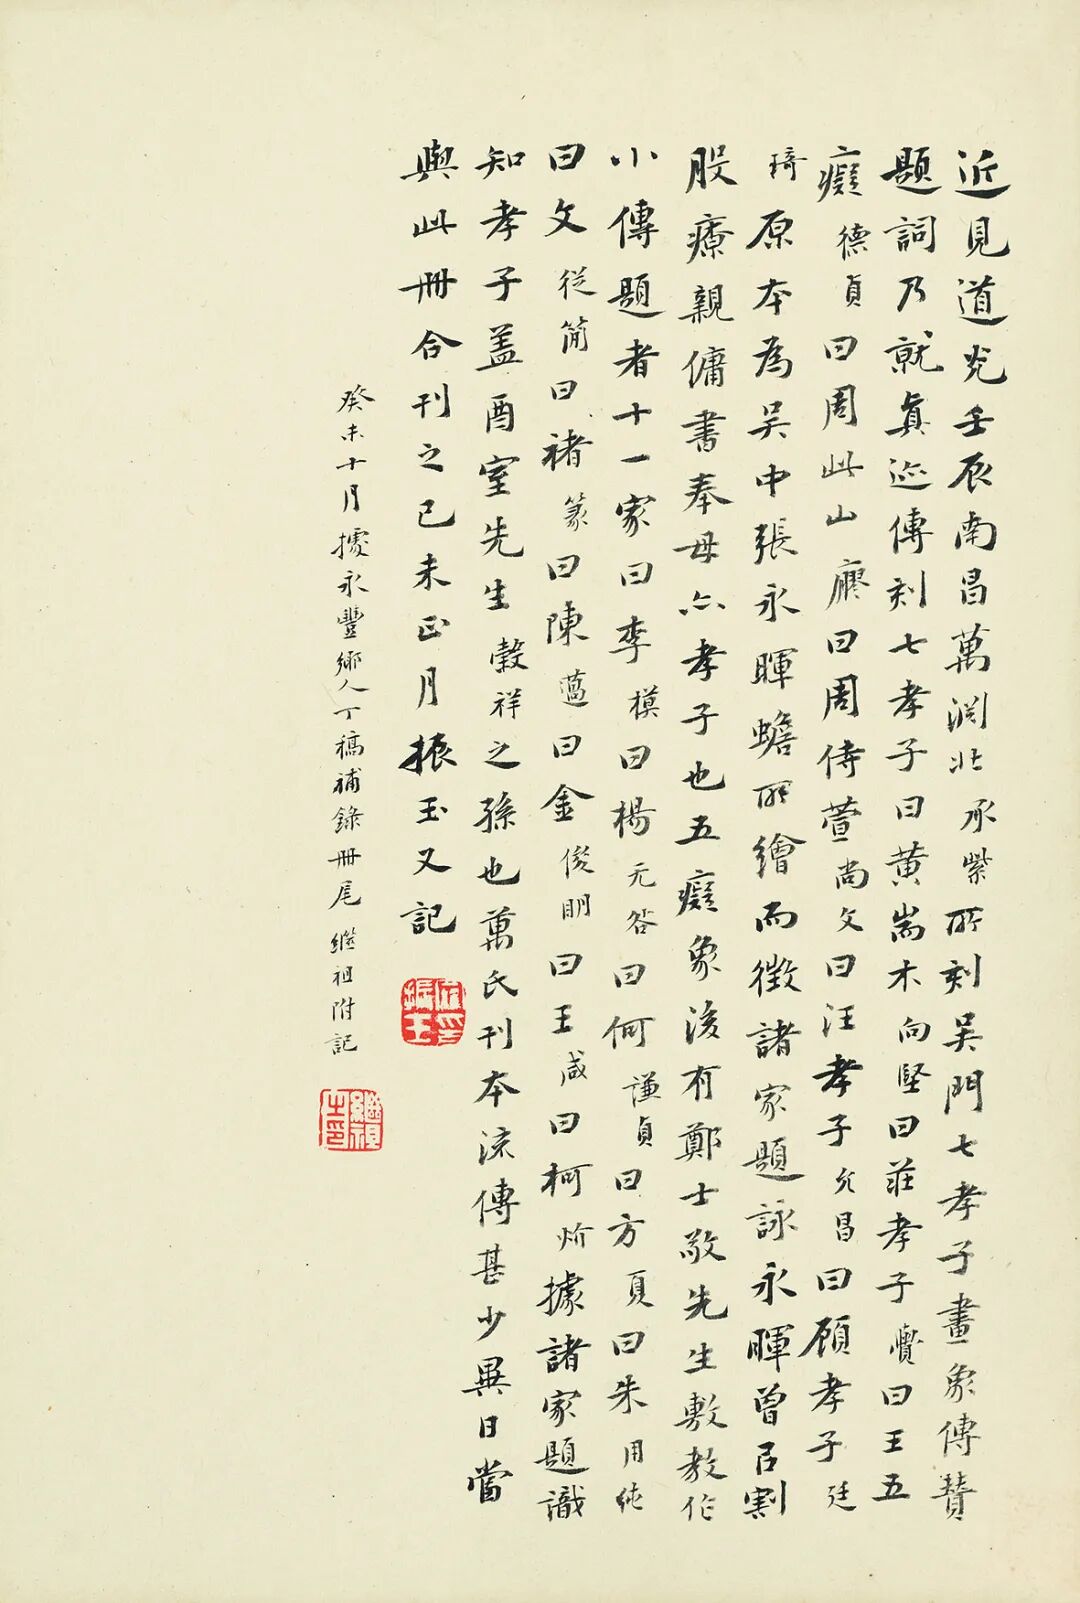 近見道光壬辰南昌萬淵北承紫所刻吳門七孝子畫象傳贊
題詞乃就真迹傳刻七孝子曰黃耑木向堅曰莊孝子曰王五
癡德貞曰周此山廖曰周侍萱尚文曰汪孝子允昌曰顧孝子廷
琦原本為吳中張永暉蟾所繪而徵諸家題詠永暉曾㠯割
股療親傭書奉母亦孝子也五癡象後有鄭士敬先生敷教作
小傳題者十一家曰李模曰楊无咎曰何謙貞曰方夏曰朱用純
曰文從簡曰褚篆曰陳薀曰金俊明曰王咸曰柯炌據諸家題識
知孝子蓋酉室先生榖祥之孫也萬氏刊本流傳甚少異日當
與此冊合刊之己未正月振玉又記
癸未十月據永豐鄉人丁稿補錄冊尾 繼祖附記